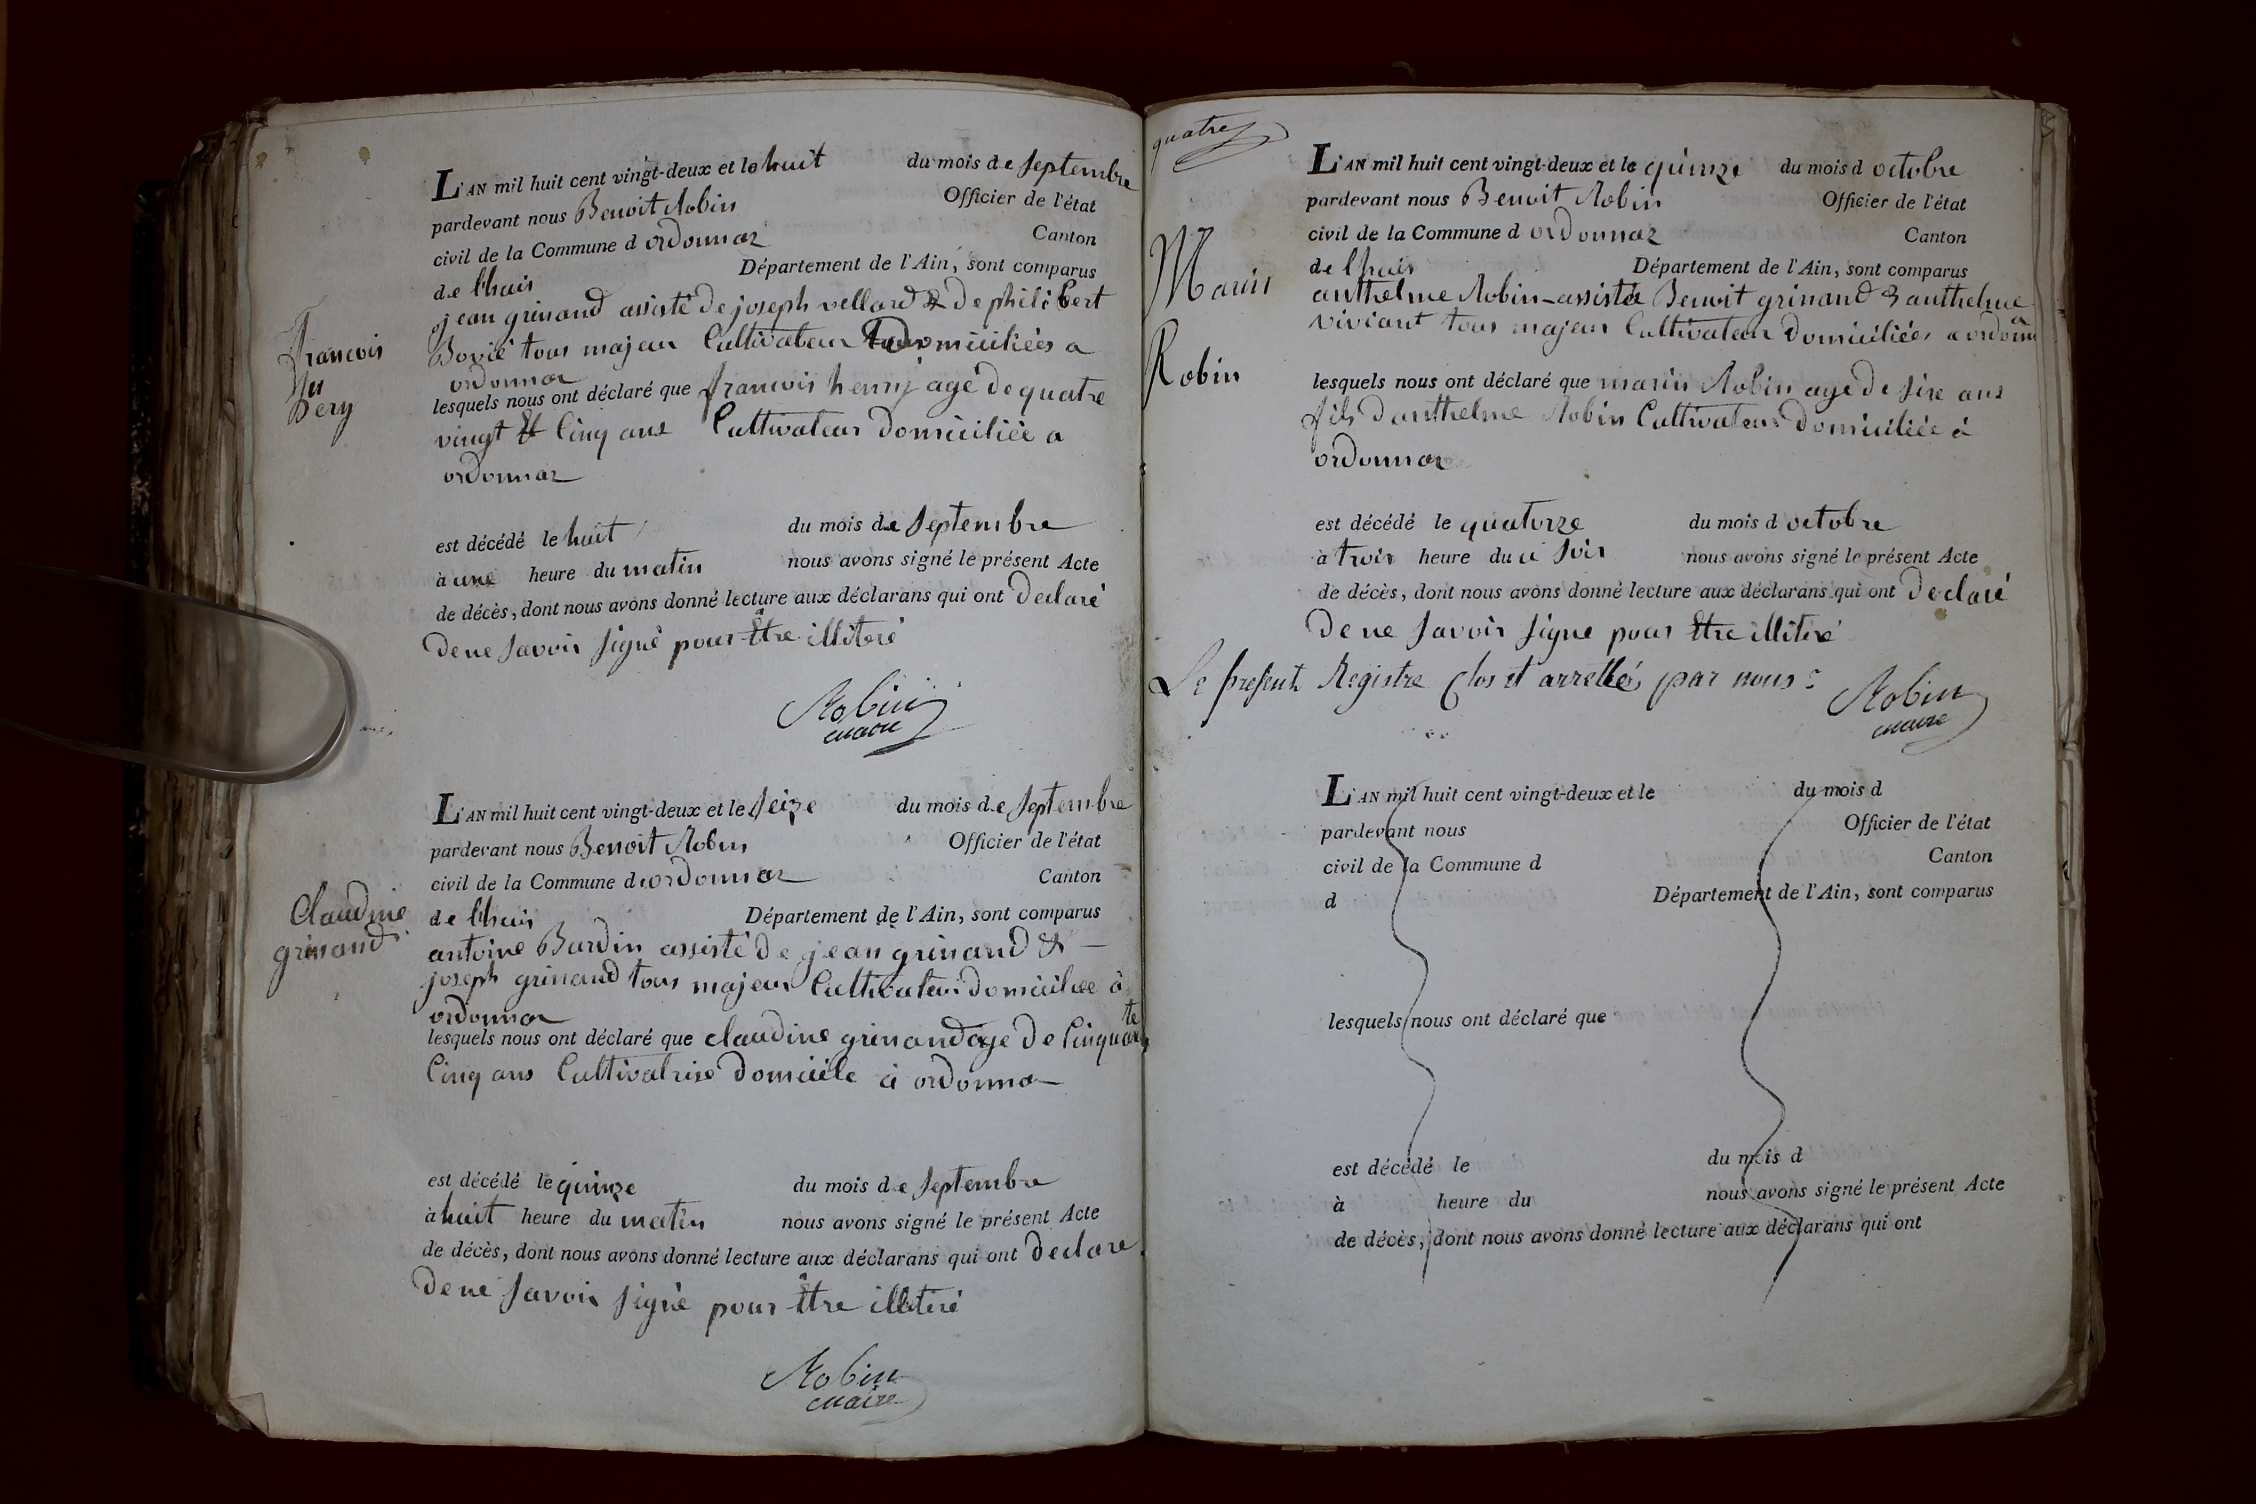 L'AN mil huit cent vingt-deux et le huit du mois de septembre
pardevant nous Benoit Robin Officier de l'état
civil de la Commune d ordonnaz Canton
de l'huis Département de l'Ain, sont comparus
jean grinand assisté de joseph vellard & de philibert
Bovié tous majeur Cultivateur domiciliées a
ordonnaz
lesquels nous ont déclaré que francois henry agé de quatre
vingt & Cinq ans Cultivateur domiciliée a
ordonnaz
francois
est décédé le huit du mois de septembre
à une heure du matin nous avons signé le présent Acte
de décès, dont nous avons donné lecture aux déclarans qui ont declaré
de ne savoir signé pour être illiteré
Robin
maire
L'AN mil huit cent vingt-deux et le seize du mois de septembre
pardevant nous Benoit Robin Officier de l'état
civil de la Commune d ordonnaz Canton
de l'huis Département de l'Ain, sont comparus
antoine Bardin assisté de jean grinand &
joseph grinand tous majeur Cultivateur domiciliee à
ordonnaz
lesquels nous ont déclaré que claudine grinand age de Cinquante
Cinq ans Cultivatrise domiciele à ordonna
Claudine
grinand
est décédé le quinze du mois de septembre
à huit heure du matin nous avons signé le présent Acte
de décès, dont nous avons donné lecture aux déclarans qui ont declare
de ne savoir signé pour être illiteré
Robin
maire
quatre
L'AN mil huit cent vingt-deux et le quinze du mois d octobre
pardevant nous Benoit Robin Officier de l'état
civil de la Commune d ordonnaz Canton
de l'huis Département de l'Ain, sont comparus
anthelme Robin assisté de Benoit grinand & anthelme
viviant tous majeur Cultivateur domiciliées a ordonna
lesquels nous ont déclaré que marin Robin age de sixe ans
fils d'anthelme Robin Cultivateur domiciliée à
ordonnaz
Marin
Robin
est décédé le quatorze du mois d octobre
à trois heure du soir nous avons signé le présent Acte
de décès, dont nous avons donné lecture aux déclarans qui ont declaré
de ne savoir signe pour être illiteré
Le present Registre Clos et arretté par nous
Robin
maire
L'AN mil huit cent vingt-deux et le du mois d
pardevant nous Officier de l'état
civil de la Commune d Canton
d Département de l'Ain, sont comparus
lesquels nous ont déclaré que
est décédé le du mois d
à heure du nous avons signé le présent Acte
de décès, dont nous avons donné lecture aux déclarans qui ont